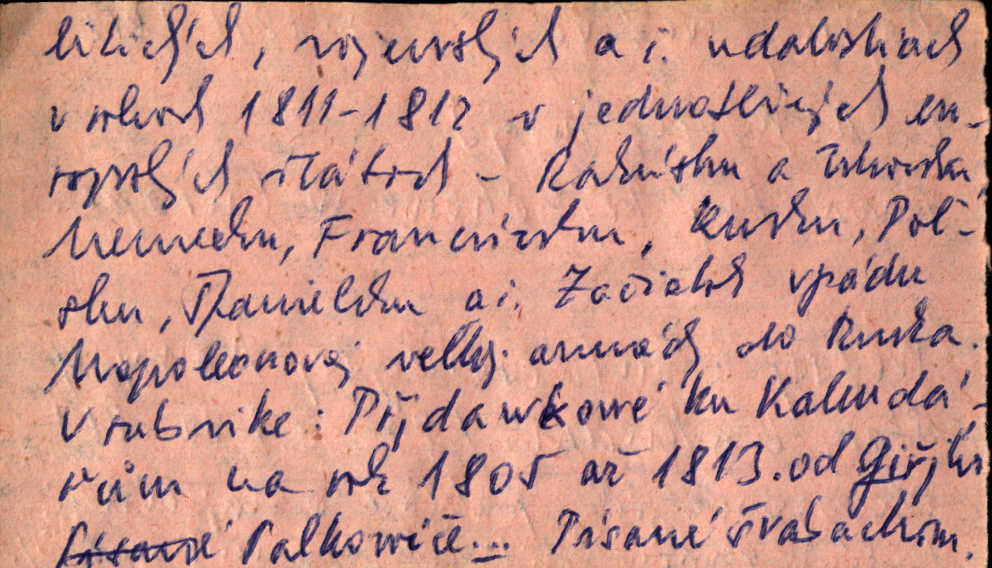 litických, vojenských a i. udalostiach
v rokoch 1811-1812 v jednotlivých eu-
ropských štátoch - Rakúsku a Uhorsku,
Nemecku, Francúzsku, Rusku, Pol-
sku, Španielsku a i. Začiatok vpádu
Napoleonovej velkej armády do Ruska.
V rubrike: Přjdawkowé ku Kalendá-
řům na rok 1805 až 1813. od Giřjka
Palkowiče... Písané švabachom.